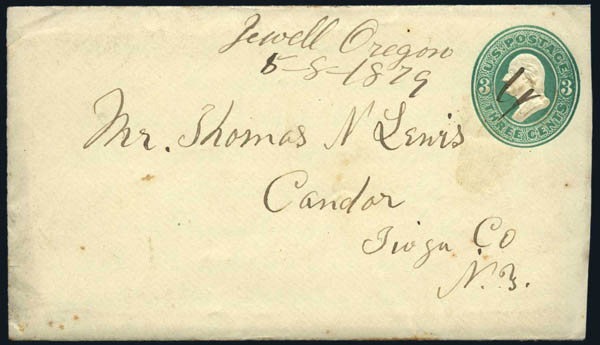 Jewell Oregon
5-8-1879
U.S. POSTAGE
3 3
THREE CENTS
Mr. Thomas N Lewis
Candor
Tioga Co
N.Y.